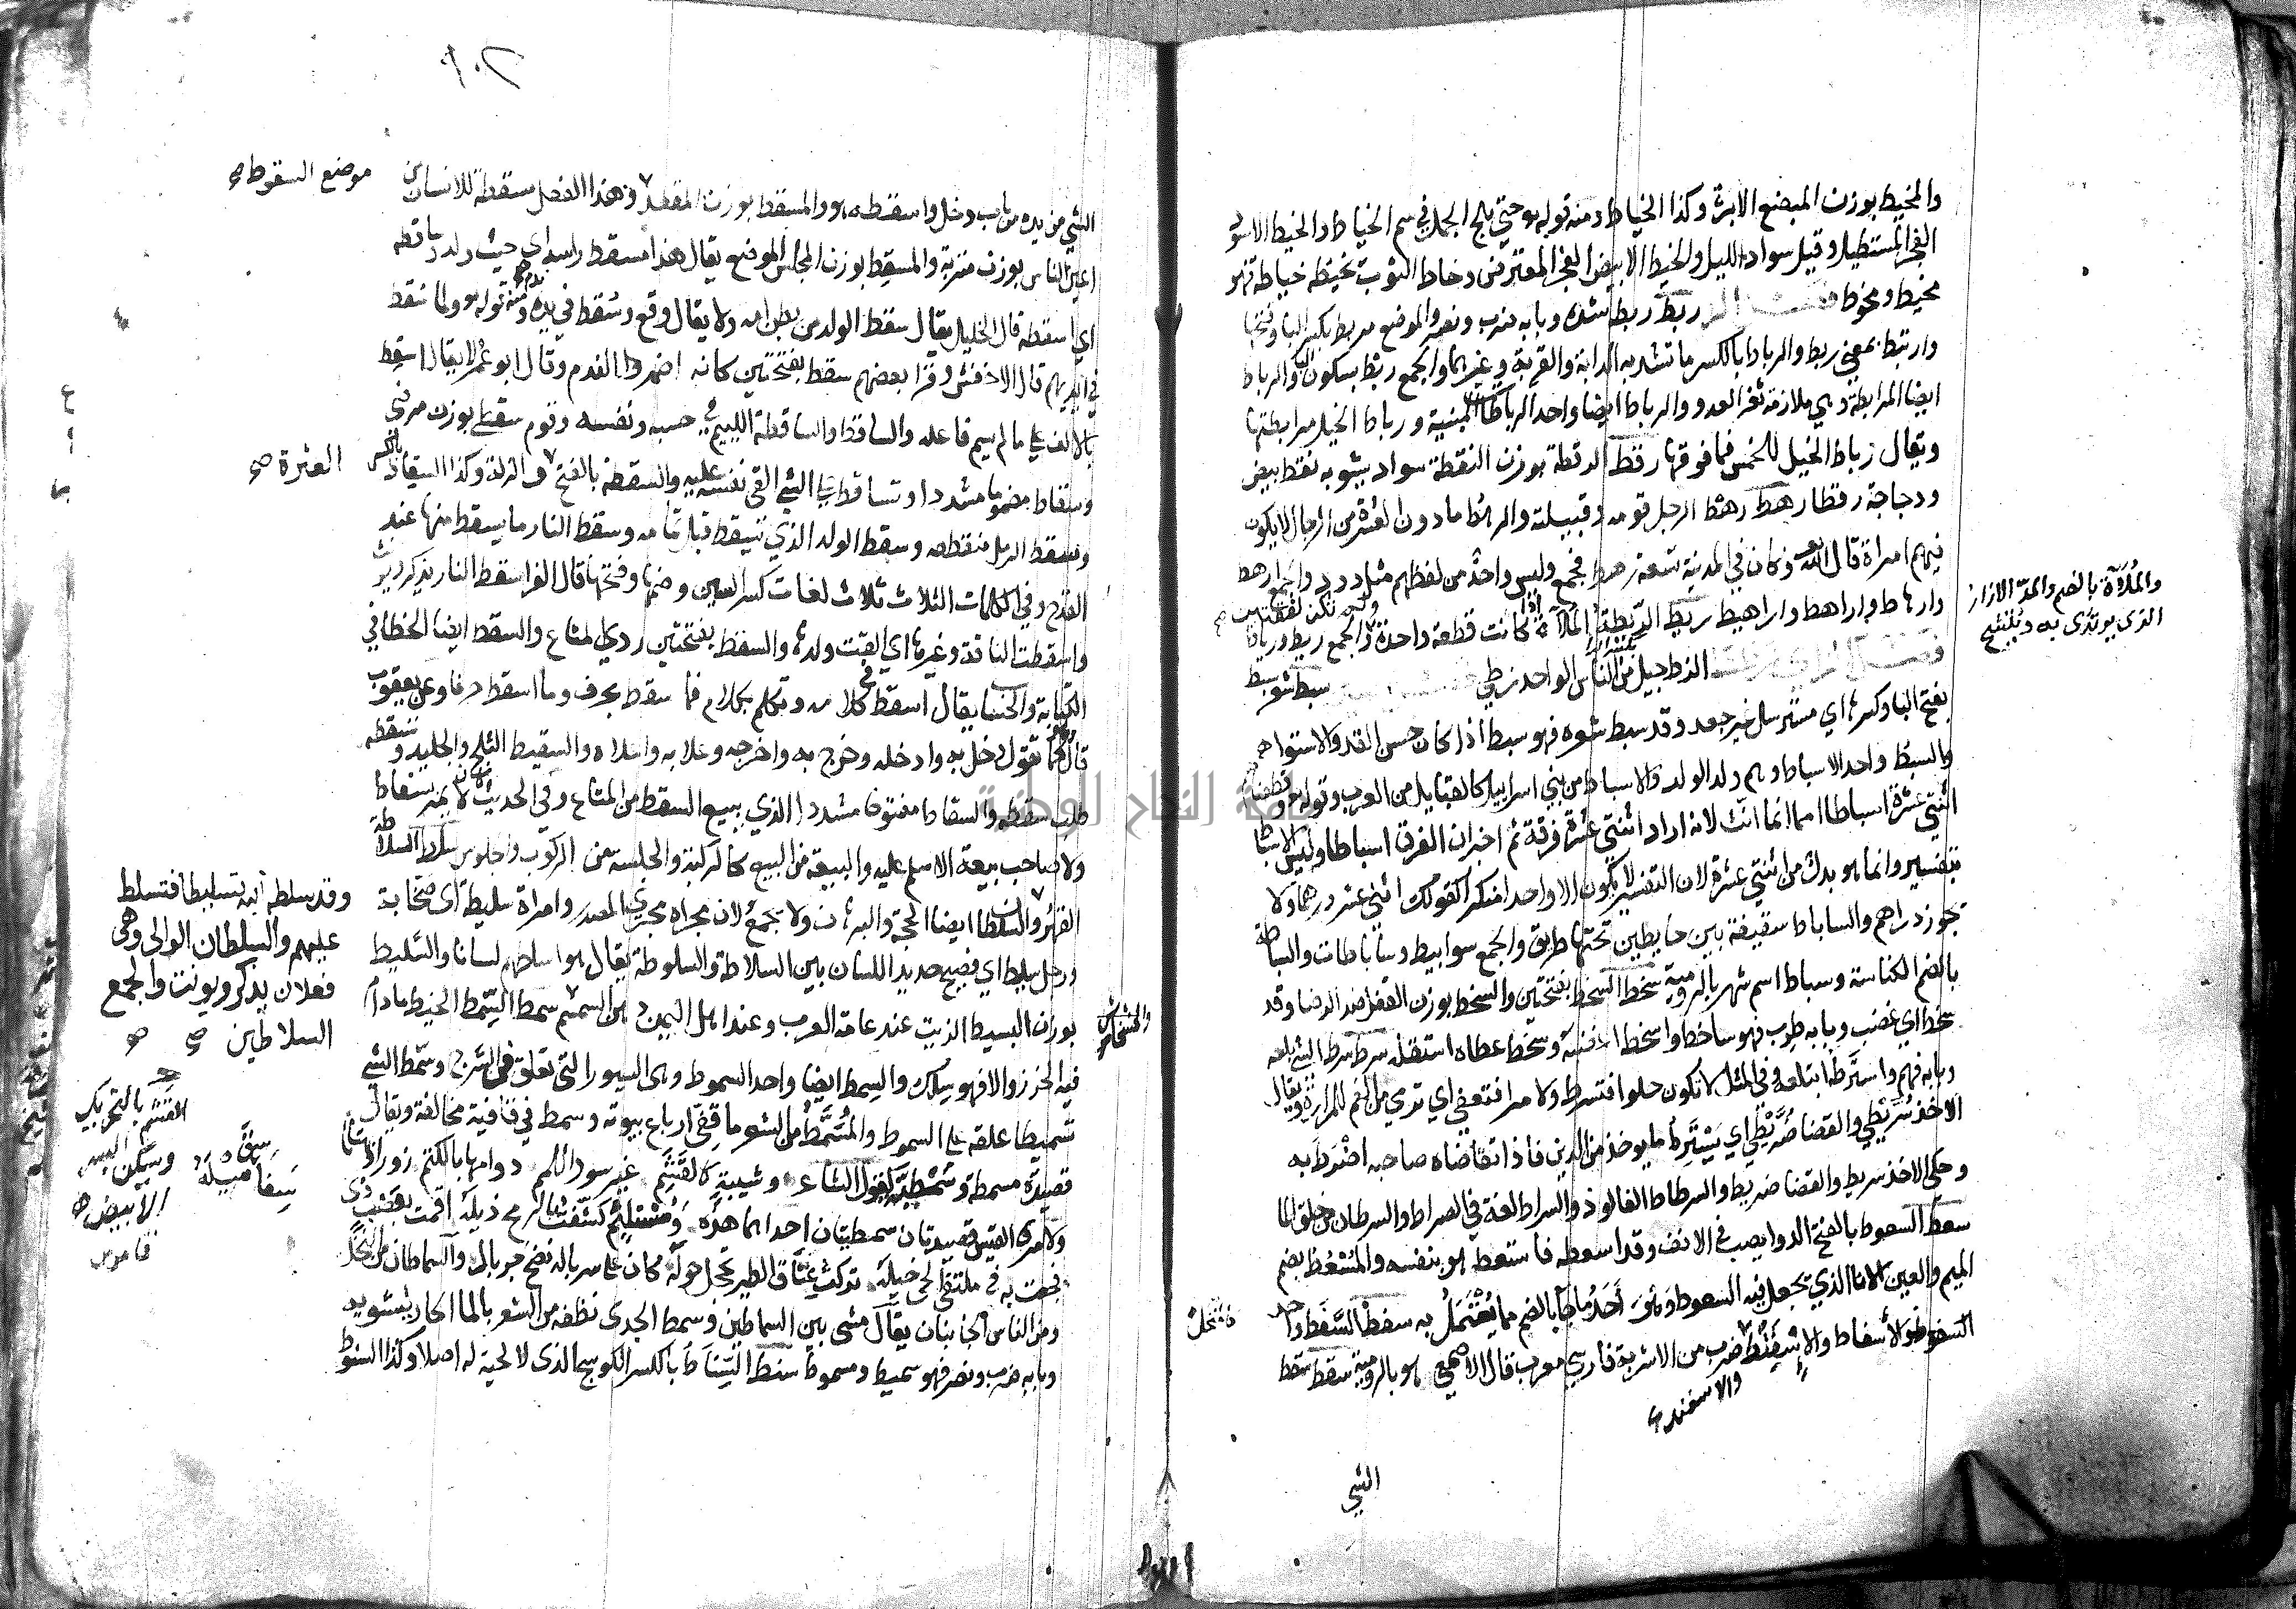 والمخيط بوزن المبضع الابرة وكذا الخياط ومنه قوله هو حتى يلج الجمل في سم الخياط والخيط الاسود
الفجر المستطيل وقيل سواد الليل والخيط الابيض الفجر المعترض وخاط الثوب يخيطه خياطة فهو
مخيط ومخيوط ربط ربط شده وبابه ضرب ونصر والموضع مربط بكسر البا وفتحها
وارتبط بمعنى ربط والرباط بالكسر ما تشد به الدابة والقربة وغيرهما والجمع ربط بسكون البا والرباط
ايضا المرابطة وهي ملازمة ثغر العدو والرباط ايضا واحد الرباطات المبنية ورباط الخيل مرابطتها
ويقال رباط الخيل للخمس فما فوقها رقط الرقطة بوزن النقطة سواد يشوبه نقط بيض
ودجاجة رقطا رهط رهط الرجل قومه وقبيلته والرهط ما دون العشرة من الرجال لا يكون
فيهم امراة قال الله تع وكان في المدينة تسعة رهط فجمع وليس واحد من لفظهم مثل ذود والجمع ارهط
وارهاط واراهط واراهيط ريط الريطة الملآة اذا كانت قطعة واحدة ولم تكن لفقتين والجمع ريط ورياط
الزط جيل من الناس الواحد زطي سبط شعر سبط
بفتح البا وكسرها اي مسترسل غير جعد وقد سبط شعره فهو سبط اذا كان حسن القد والاستوا
والسبط واحد الاسباط وهم ولد الولد والاسباط من بني اسراييل كالقبايل من العرب وقوله هو وقطعناهم
اثنتي عشرة اسباطا امما انما انث لانه اراد اثنتي عشرة فرقة ثم اخبر ان الفرق اسباطا وليس الاسباط
بتفسير وانما هو بدل من اثنتي عشرة لان التفسير لا يكون الا واحدا منكرا كقولك اثني عشر درهما ولا
يجوز دراهم والساباط سقيفة بين حايطين تحتها طريق والجمع سوابيط وساباطات والسباطة
بالضم الكناسة وسباط اسم شهر بالرومية سخط السخط بفتحتين والسخط بوزن القفل ضد الرضا وقد
سخط اي غضب وبابه طرب فهو ساخط واسخط اغضبه وتسخط عطاه استقله سرط سرط الشي بلعه
وبابه فهم واسترطه ابتلعه وفي المثل لا تكون حلوا فتسترط ولا مرا فتعقى اي ترمى من الفم للمرارة ويقال
الاخذ سريطي والقضا ضريطي اي يسترط ما ياخذ من الدين فاذا تقاضاه صاحبه اضرط به
وحكى الاخذ سريط والقضا ضريط والسرطاط الفالوذ والسراط لغة في الصراط والسرطان من خلق الما
سعط السعوط بالفتح الدوا يصب في الانف وقد اسعطه فاستعط هو بنفسه والمسعط بضم
الميم والعين الانا الذي يجعل فيه السعوط وهو احد ما جا بالضم مما يعتمل به سفط السفط واحد
الاسفاط والاسفنط ضرب من الاشربة فارسي معرب قال الاصمعي هو بالرومية سقط سقط
والاسفند
الشي
والملاءة بالضم والمد الازار
الذى يرتدى به
موضع السقوط صح
الشي من يده من باب دخل واسقطه هو والمسقط بوزن المقعد وهذا الفعل مسقطة للانسان من
اعين الناس بوزن متربة والمسقط بوزن المجلس الموضع يقال هذا مسقط راسه اي حيث ولد وساقطه
اي اسقطه قال الخليل يقال سقط الولد من بطن امه ولا يقال وقع وسقط في يده ندم ومنه قوله هو ولما سقط
في ايديهم قال الاخفش وقرا بعضهم سقط بفتحتين كانه اضمر الندم وقال ابو عمرو لا يقال اسقط
بالالف على ما لم يسم فاعله والساقط والساقطة اللييم في حسبه ونفسه وقوم سقطى بوزن مرضى
وسقاط مضموما مشددا وتساقط على الشي القى نفسه عليه والسقطة بالفتح الزلة وكذا السقاط بالكسر
العثرة صح
وسقط الرمل منقطعه وسقط الولد الذي يسقط قبل تمامه وسقط النار ما يسقط منها عند
القدح وفي الكلمات الثلاث ثلاث لغات كسر السين وضمها وفتحها قال الفرا سقط النار يذكر ويؤنث
واسقطت الناقة وغيرها اي القت ولدها والسقط بفتحتين ردي المتاع والسقط ايضا الخطا في
الكتابة والحساب يقال اسقط في كلامه وتكلم بكلام فما سقط بحرف وما اسقط حرفا وعن يعقوب
قال كما تقول دخل به وادخله وخرج به واخرجه وعلا به واعلاه والسقيط الثلج والجليد وتسقطه
طلب سقطه والسقاط مفتوحا مشددا الذي يبيع السقط من المتاع وفي الحديث كان لا يمر بسقاط
ولا صاحب بيعة الا سلم عليه والبيعة من البيع كالركبة والجلسة من الركوب والجلوس سلط السلاطة
القهر والسلطان ايضا الحجة والبرهان ولا يجمع لان مجراه مجرى المصدر وامراة سليطة اى صخابة
ورجل سليط اي فصيح حديد اللسان بين السلاطة والسلوطة يقال هو اسلطهم لسانا والسليط
بوزن البسيط الزيت عند عامة العرب وعند اهل اليمن دهن السمسم سمط السمط الخيط ما دام
فيه الخرز والا فهو سلك والسمط ايضا واحد السموط وهى السيور التى تعلق من السرج وسمط الشي
تسميطا علقه على السموط والمسمط من الشعر ما قفي ارباع بيوته وسمط في قافية مخالفة ويقال
قصيدة مسمطة وسمطية كقول الشاعر وشيبة كالقثم غير سود اللمم دوايتها بالكتم زورا
ولامرى القيس قصيدتان سمطيتان احداهما هذه ومستلئم كشفت بالرمح ذيله اقمت بعضب ذى
فجعت به فى ملتقى الحى خيله تركت عتاق الطير تحجل حوله كان على سرباله نضح جريال والسماطان من النخل
ومن الناس الجانبان يقال مشى بين السماطين وسمط الجدى نظفه من الشعر بالما الحار ليشويه
وبابه ضرب ونصر فهو سميط ومسموط سنط السناط بالكسر الكوسج الذى لا لحية له اصلا وكذا السنوط
وقد سلطه الله تسليطا فتسلط
عليهم والسلطان الوالى وهى
فعلان يذكر ويونث والجمع
السلاطين صح
بالتحريك
الابيض
قاموس